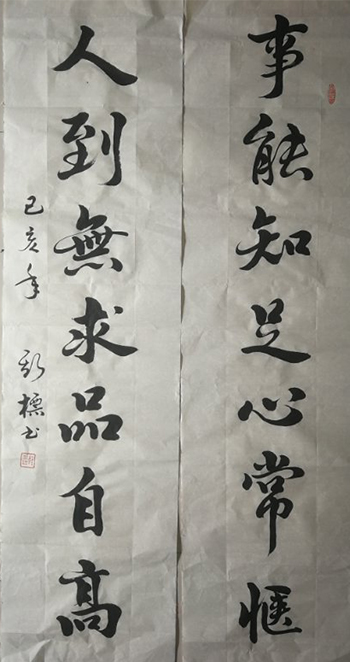 事能知足心常愜
人到無求品自高
己亥年 標书